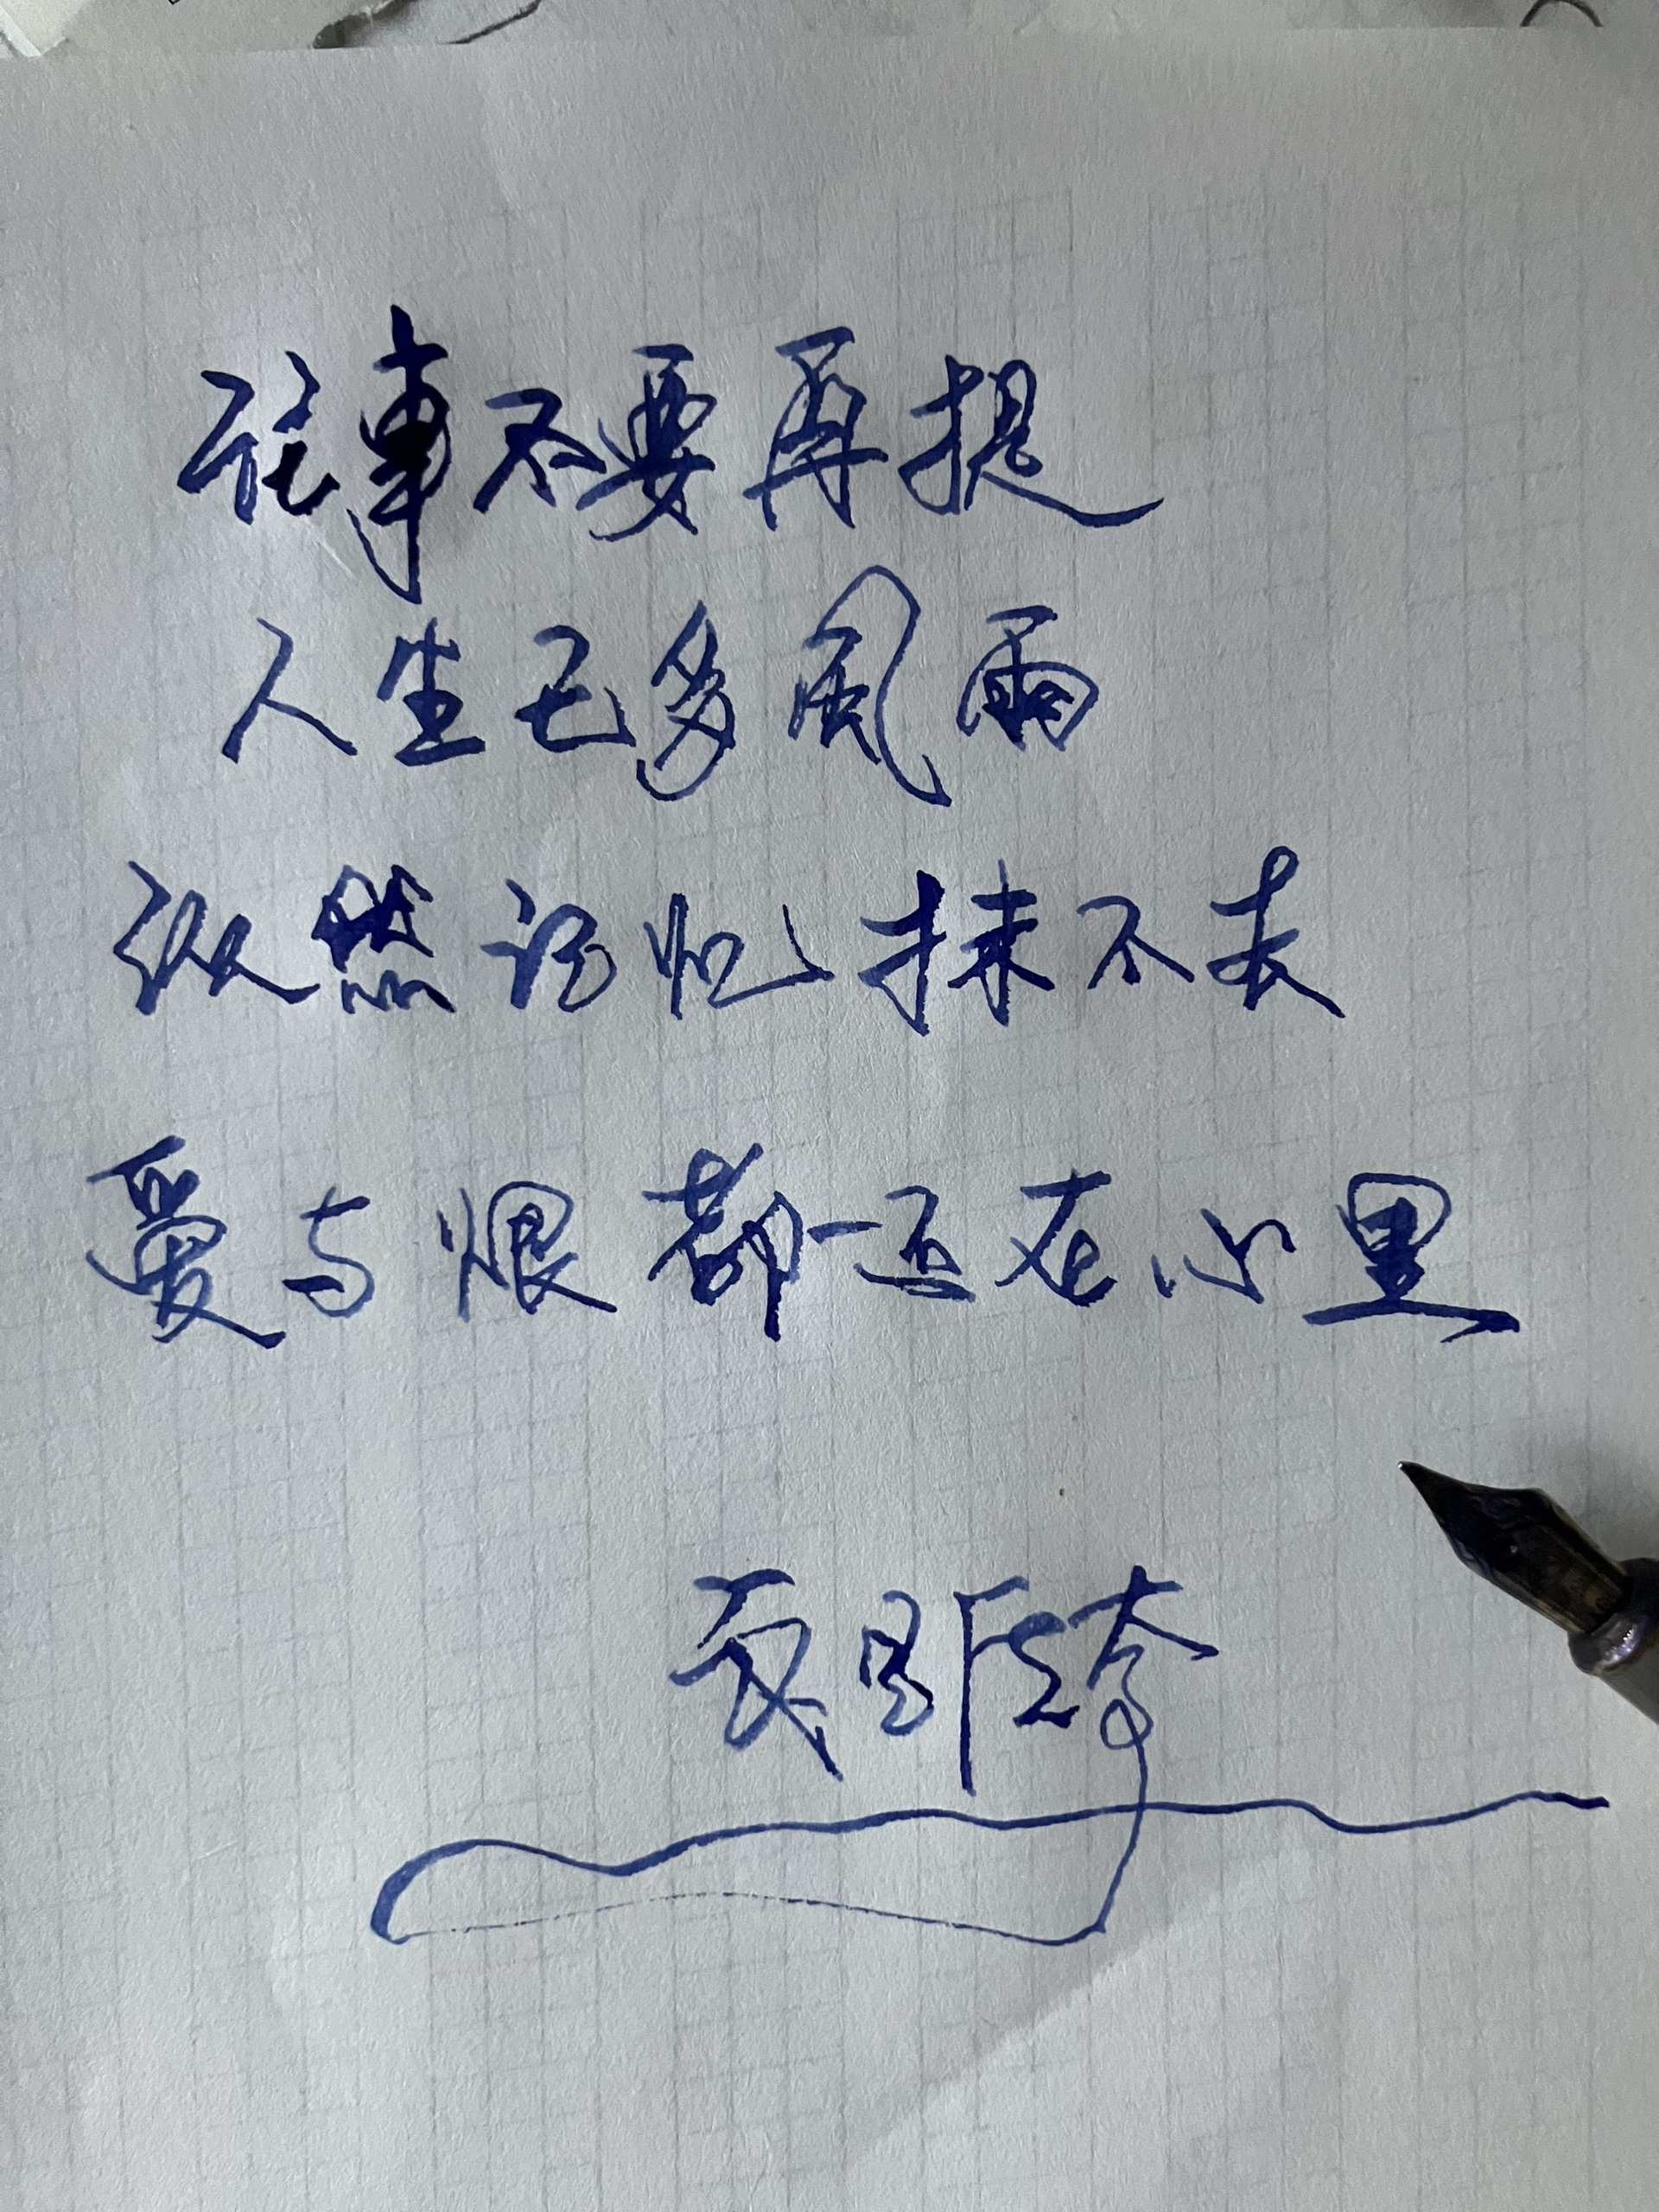 往事不要再提
人生已多风雨
纵然记忆抹不去
爱与恨都还在心里